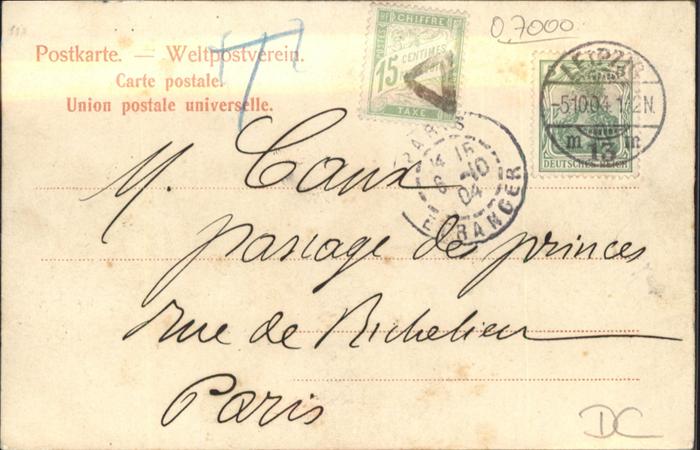 0,7000
Postkarte. — Weltpostverein.
Carte postale.
Union postale universelle.
T
CHIFFRE
15 CENTIMES
TAXE
T
LEIPZIG
-5.10.04. 1-2N.
13
DEUTSCHES REICH
PARIS
16
6 -10
04
ETRANGER
M. Caux
passage des princes
rue de Richelieu
Paris
DC